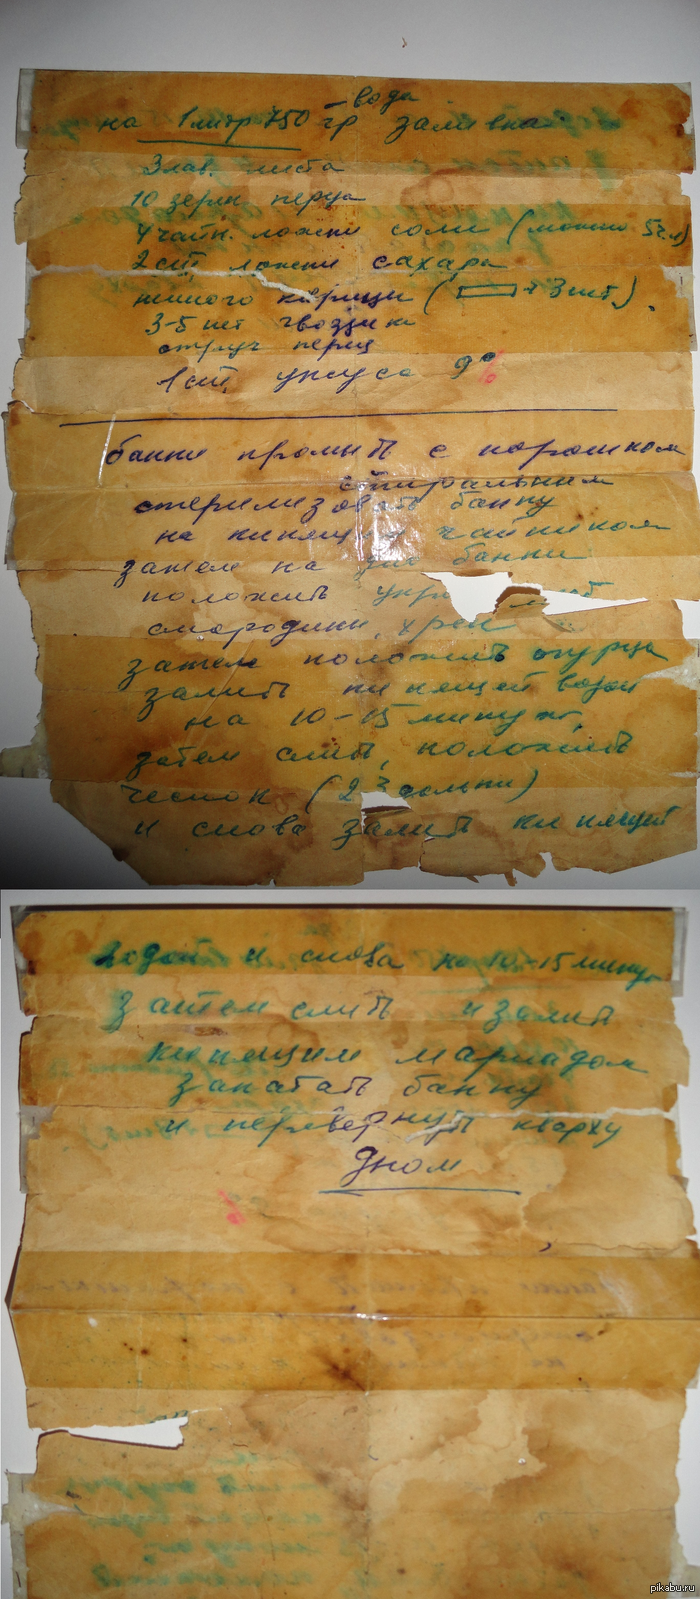 – вода
на 1 литр 750 гр заливка
3 лав. листа
10 зерн перца
4 чайн. ложки соли (можно 5 ч.л)
2 ст. ложки сахара
немного корицы ( + 3 шт).
3-5 шт гвоздики
струч перец
1 ст. уксуса 9%
банки промыть с порошком
стиральным
стерилизовать банку
на кипящим чайником
затем на дно банки
положить
смородины, хрен
затем положить огурцы
залить кипящей водой
на 10-15 минут,
затем слить, положить
чеснок (2 3 дольки)
и снова залить кипящей
водой и снова на 10-15 минут
затем слить и залить
кипящим маринадом
закатать банку
и перевернуть кверху
дном
%
pikabu.ru